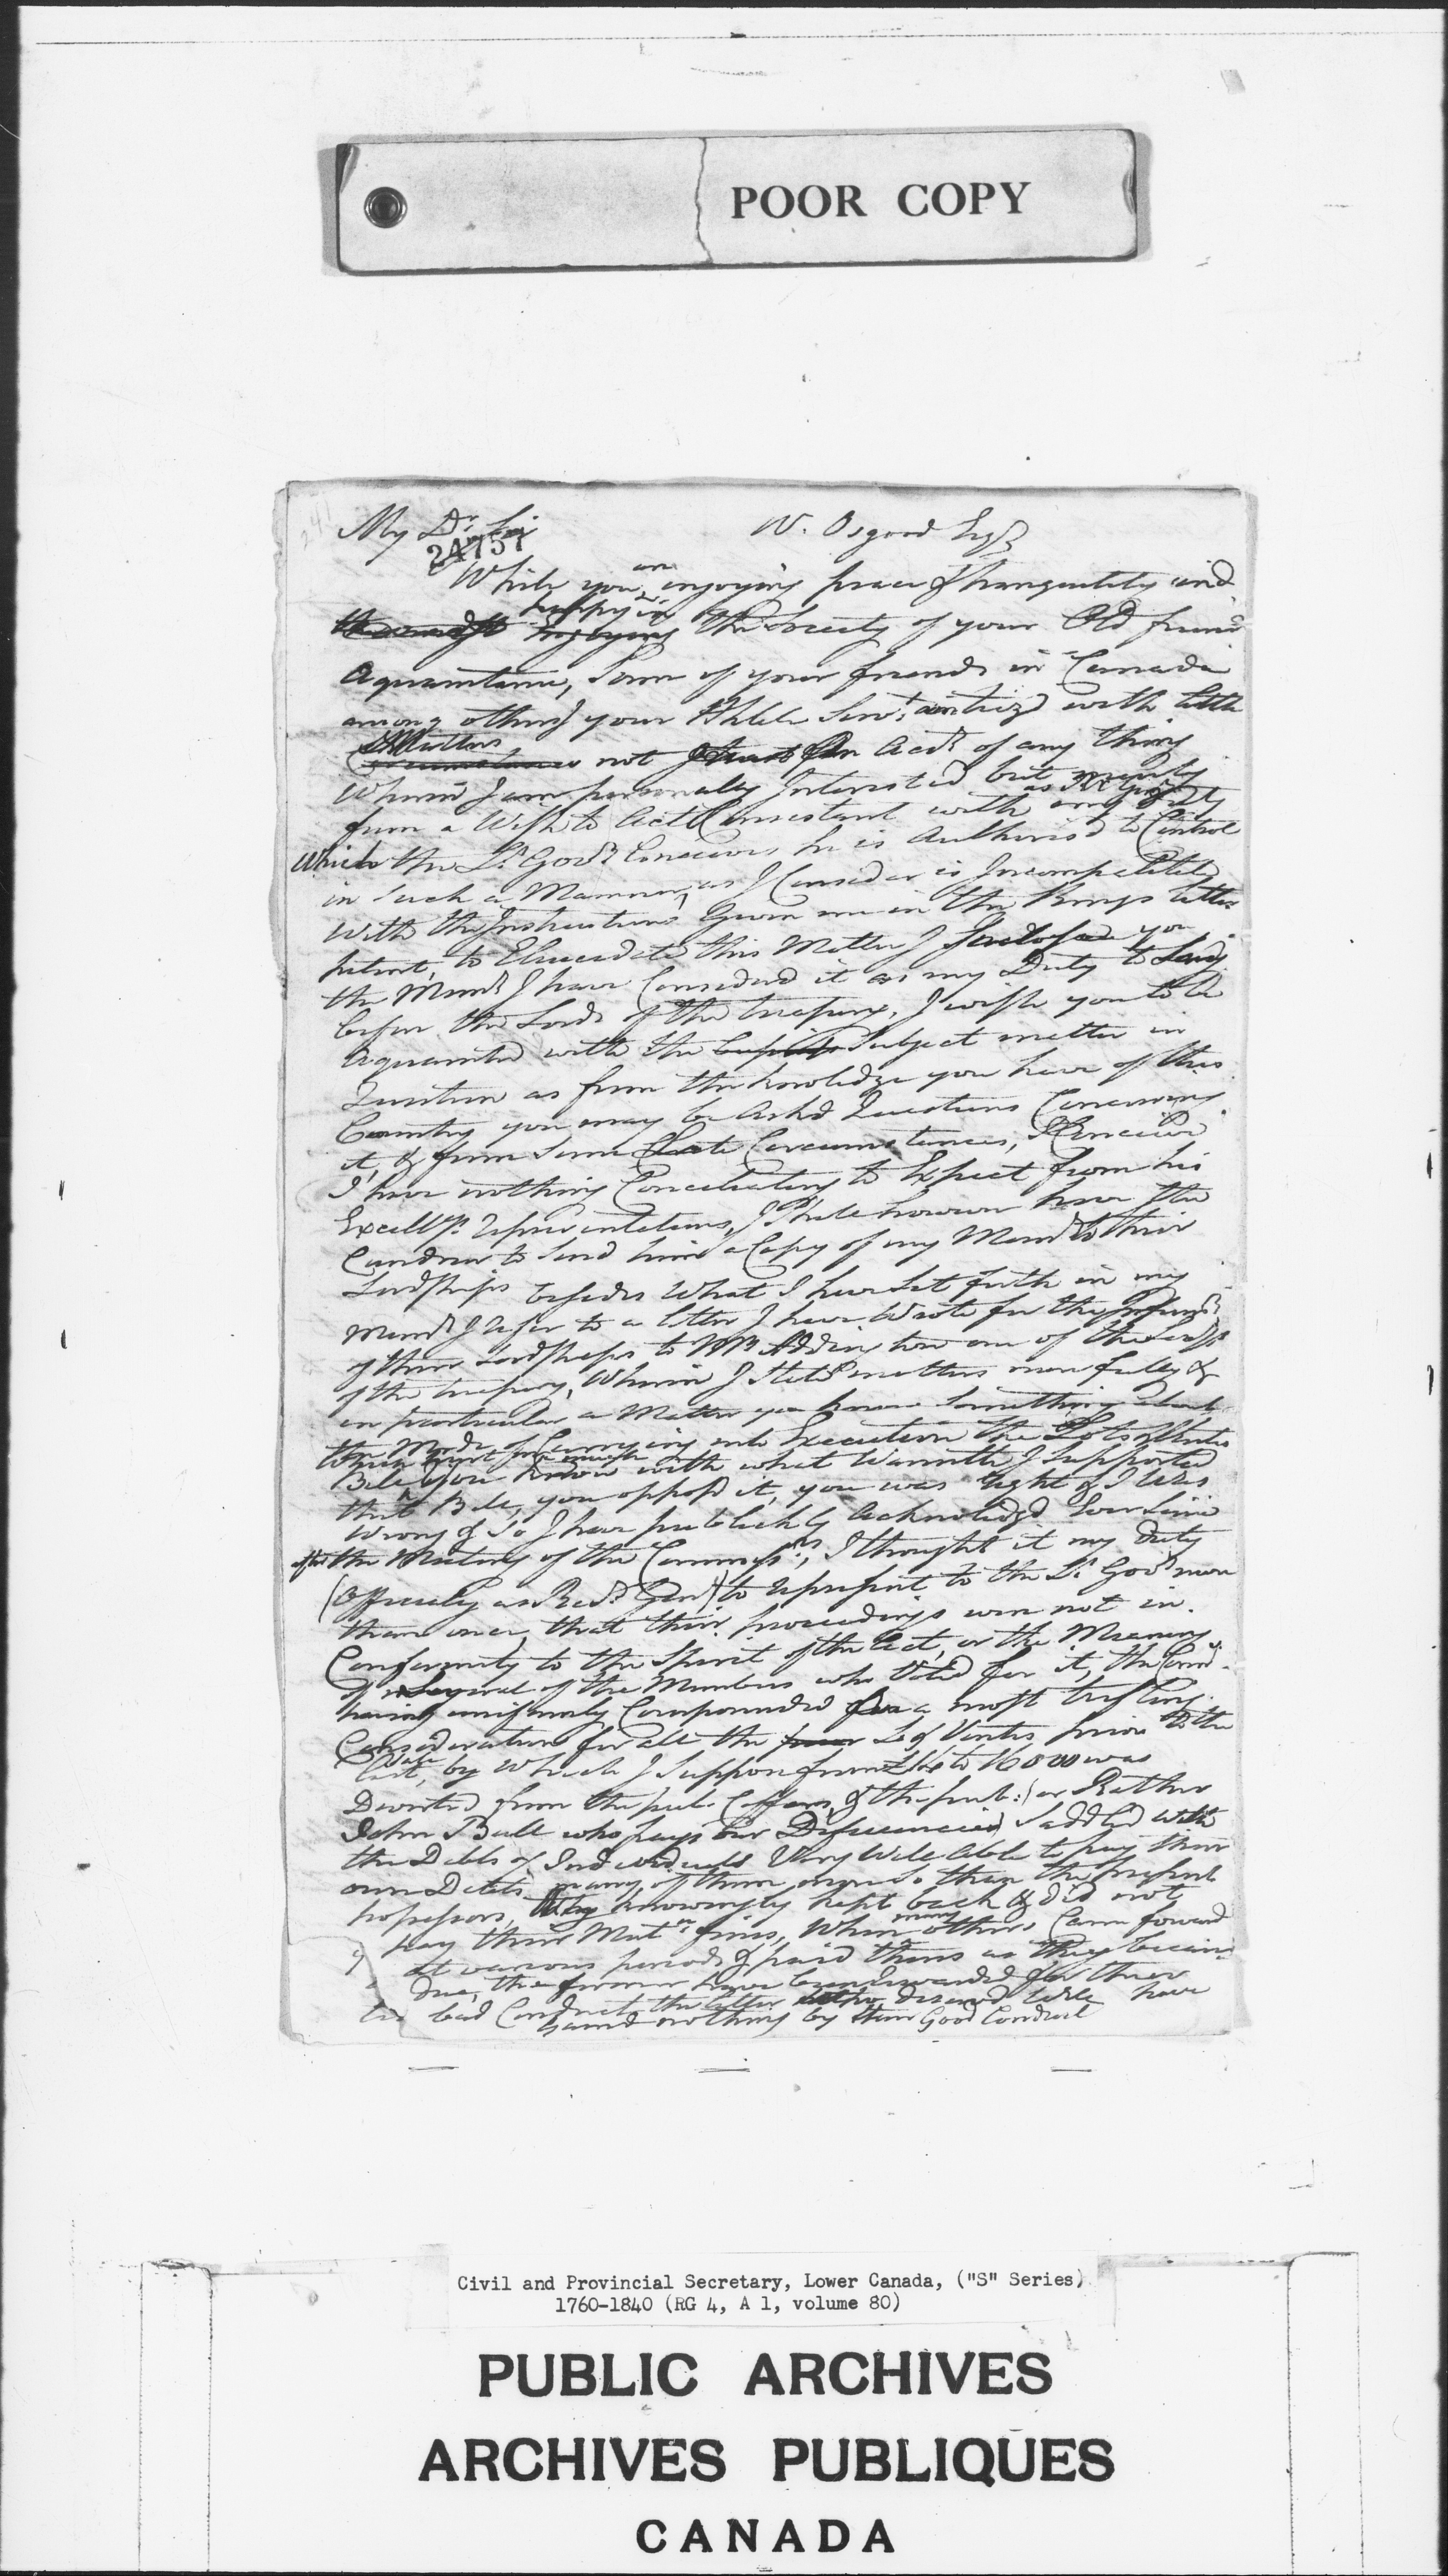 POOR COPY
My Dr Sir W. Osgood Esqr
24757
While you are enjoying peace & tranquility and
happy in the Society of your Old friend
Aquaintance, Some of your friends in Canada
among others your Hble Servt
Matters not on Acct of any thing
Wherein I am personally Interested but merely
from a Wish to Act Consistant with my Duty as Rr Genl
Which the Lt Govr Conceives he is Authorisd to Control
in Such a Manner, as I Consider is Incompatible
With the Instructions Given me in the Kings letters
patent, to Elucidate this Matter I Inclose you
the Meml I have Considerd it as my Duty to Lay
before the Lords of the treasury, I wish you to be
Aquainted with the Subject matter in
Question as from the knowledge you have of this
Country you may be Askd Questions Concerning
it, & from Some Late Circumstances, I Conceive
I have nothing Conciliatory to Expect from his
Excellys representations, I Shall however have the
Candour to Send him a Copy of my Meml to their
Lordships besides What I have Set forth in my
Meml I refer to a letter I have Wrote for the
of their Lordships to Mr Addington one of the Secys
of the treasury, Wherein I State matters more fully &
in particular a Matter you know Something about
the Mode of Carrying into Execution the Lods & Ventes
Bill you know with what Warmth I Supported
that Bill, you opposd it, you was right & I Was
Wrong & So I have publickly Acknowledgd Ever Since
after the Meeting of the Commissrs, I thought it my Duty
(Officially as Recr Genl) to represent to the Lt Govr more
than once, that their proceedings were not in
Conformity to the Spirit of the Act, or the Meaning
of Several of the Members who Voted for it, the Comrs
having uniformly Compounded for a most trifling
Consideration for all the Ls & Ventes prior to the
last, by Which I Suppose from £14 to 16000 was
Diverted from the pub. Coffers, & the pub: (or Rather
John Bull who pays our Deficiencies) Saddled with
the Debts of Individuals Very Well Able to pay their
own Debts many of them more So than the present
possessors, they knowingly kept back & did not
pay their Mutn fines, When many others Came forward
at various periods & paid theirs as they became
Due, the former have been rewarded for their
bad Conduct the latter who deservd Well have
Gaind nothing by their Good Conduct
Civil and Provincial Secretary, Lower Canada, ("S" Series)
1760-1840 (RG 4, A 1, volume 80)
PUBLIC ARCHIVES
ARCHIVES PUBLIQUES
CANADA